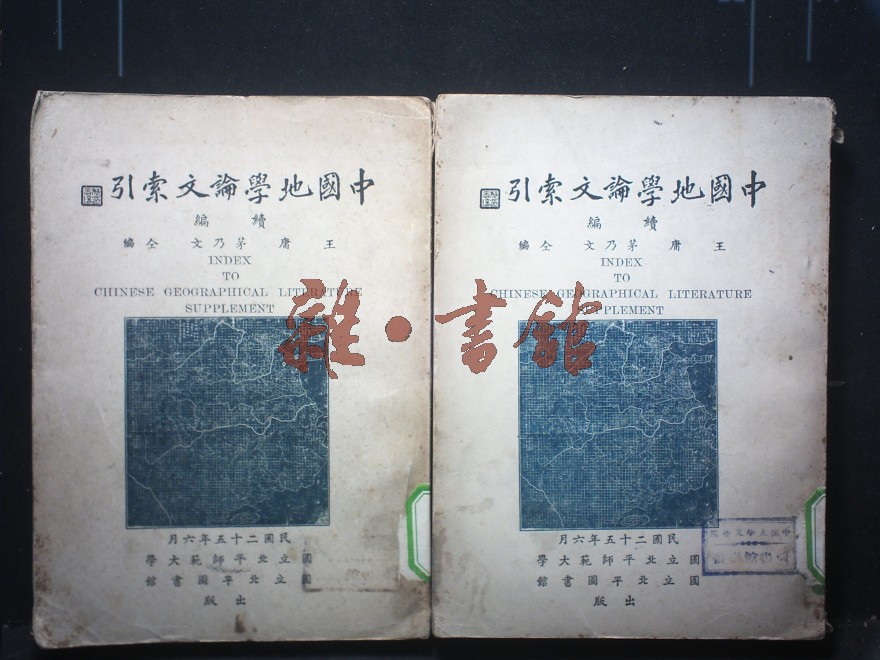 中國地學論文索引
續編
王庸 茅乃文 仝編
INDEX
TO
CHINESE GEOGRAPHICAL LITERATURE
SUPPLEMENT
民國二十五年六月
國立北平師範大學
國立北平圖書館
出版
中國地學論文索引
續編
王庸 茅乃文 仝編
INDEX
TO
CHINESE GEOGRAPHICAL LITERATURE
SUPPLEMENT
民國二十五年六月
國立北平師範大學
國立北平圖書館
出版
雜·書館